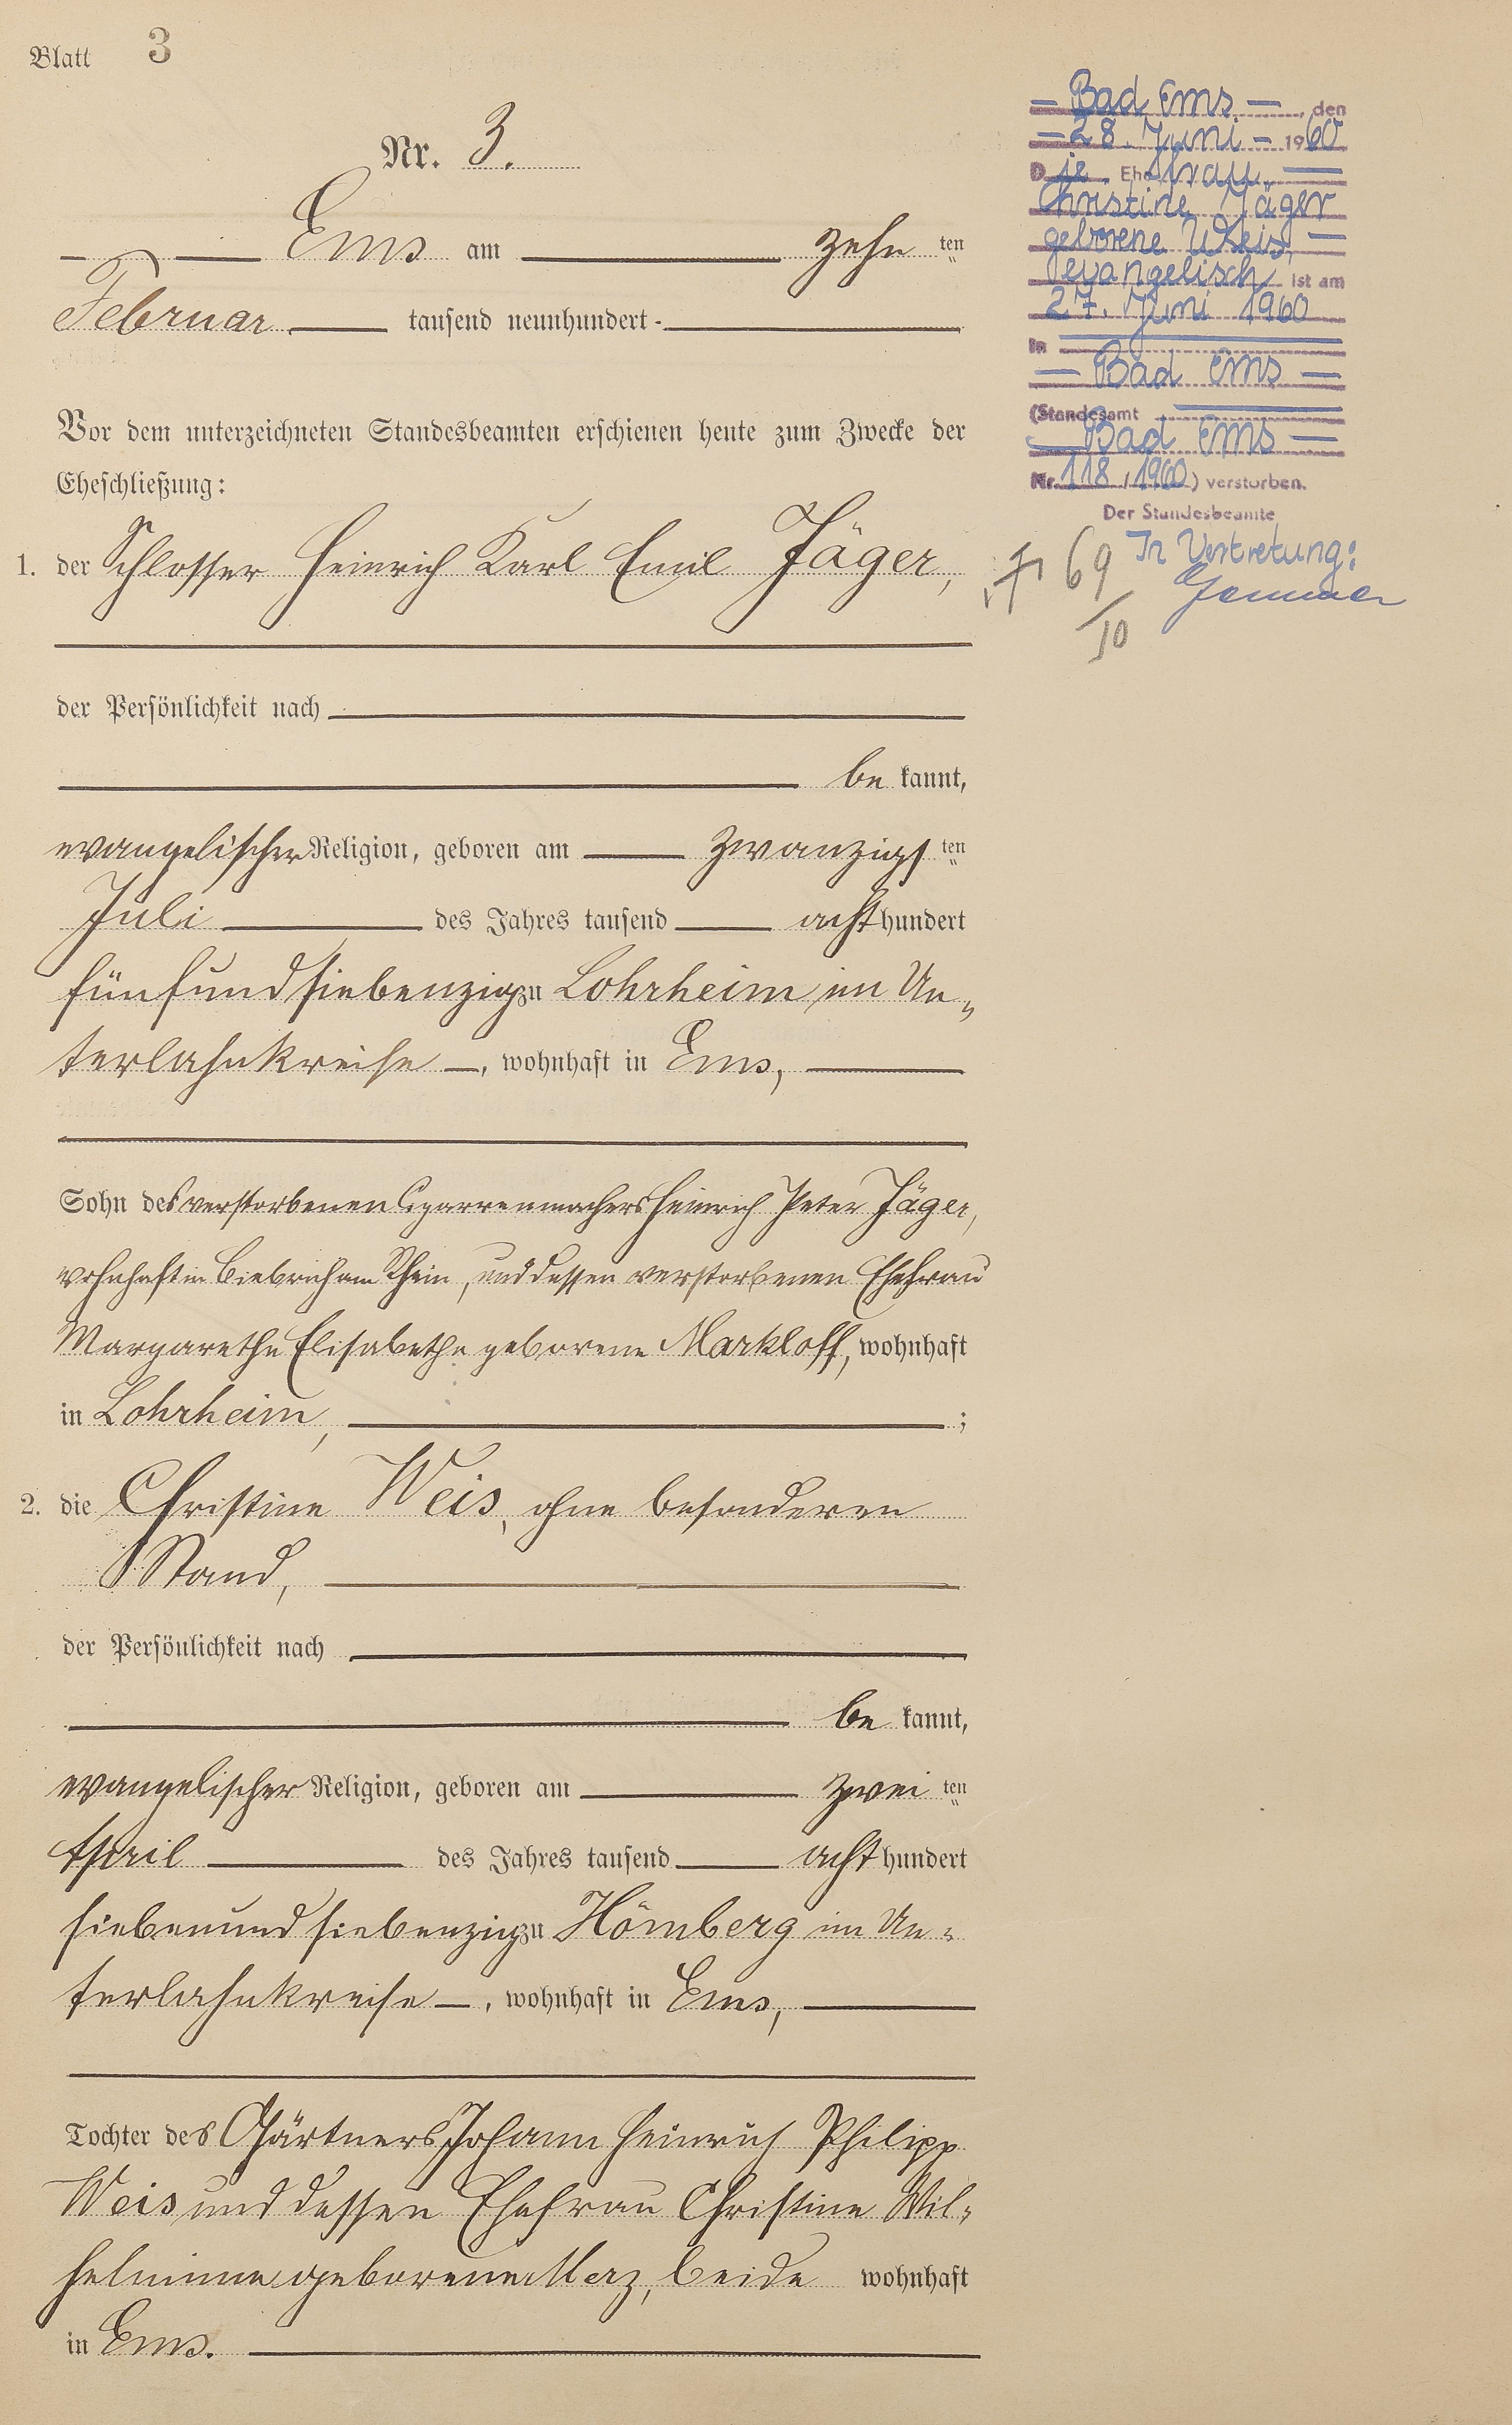 Blatt 3
Nr. 3.
Ems am zehn ten
Februar tausend neunhundert
Vor dem unterzeichneten Standesbeamten erschienen heute zum Zwecke der
Eheschließung:
1. der Schlosser Heinrich Karl Emil Jäger,
der Persönlichkeit nach
be kannt,
evangelischer Religion, geboren am zwanzigs ten
Juli des Jahres tausend acht hundert
fünfundsiebenzig zu Lohrheim im Un-
terlahnkreise, wohnhaft in Ems,
Sohn des verstorbenen Cigarrenmachers Heinrich Peter Jäger,
wohnhaft in Biebrich am Rhein, und dessen verstorbenen Ehefrau
Margarethe Elisabethe geborene Markloff, wohnhaft
in Lohrheim, ;
2. die Christine Weis, ohne besonderen
Stand,
der Persönlichkeit nach
be kannt,
evangelischer Religion, geboren am zwei ten
April des Jahres tausend acht hundert
siebenundsiebenzig zu Hömberg im Un-
terlahnkreise, wohnhaft in Ems,
Tochter des Gärtners Johann Heinrich Philipp
Weis und dessen Ehefrau Christine Wil-
helmine geborene Merz, beide wohnhaft
in Ems.
Bad Ems, den
28. Juni 1960
Die Ehefrau
Christine Jäger
geborene Weis,
evangelisch ist am
27. Juni 1960
in
Bad Ems
(Standesamt
Bad Ems
Nr. 118/1960) verstorben.
Der Standesbeamte
In Vertretung:
69
/10